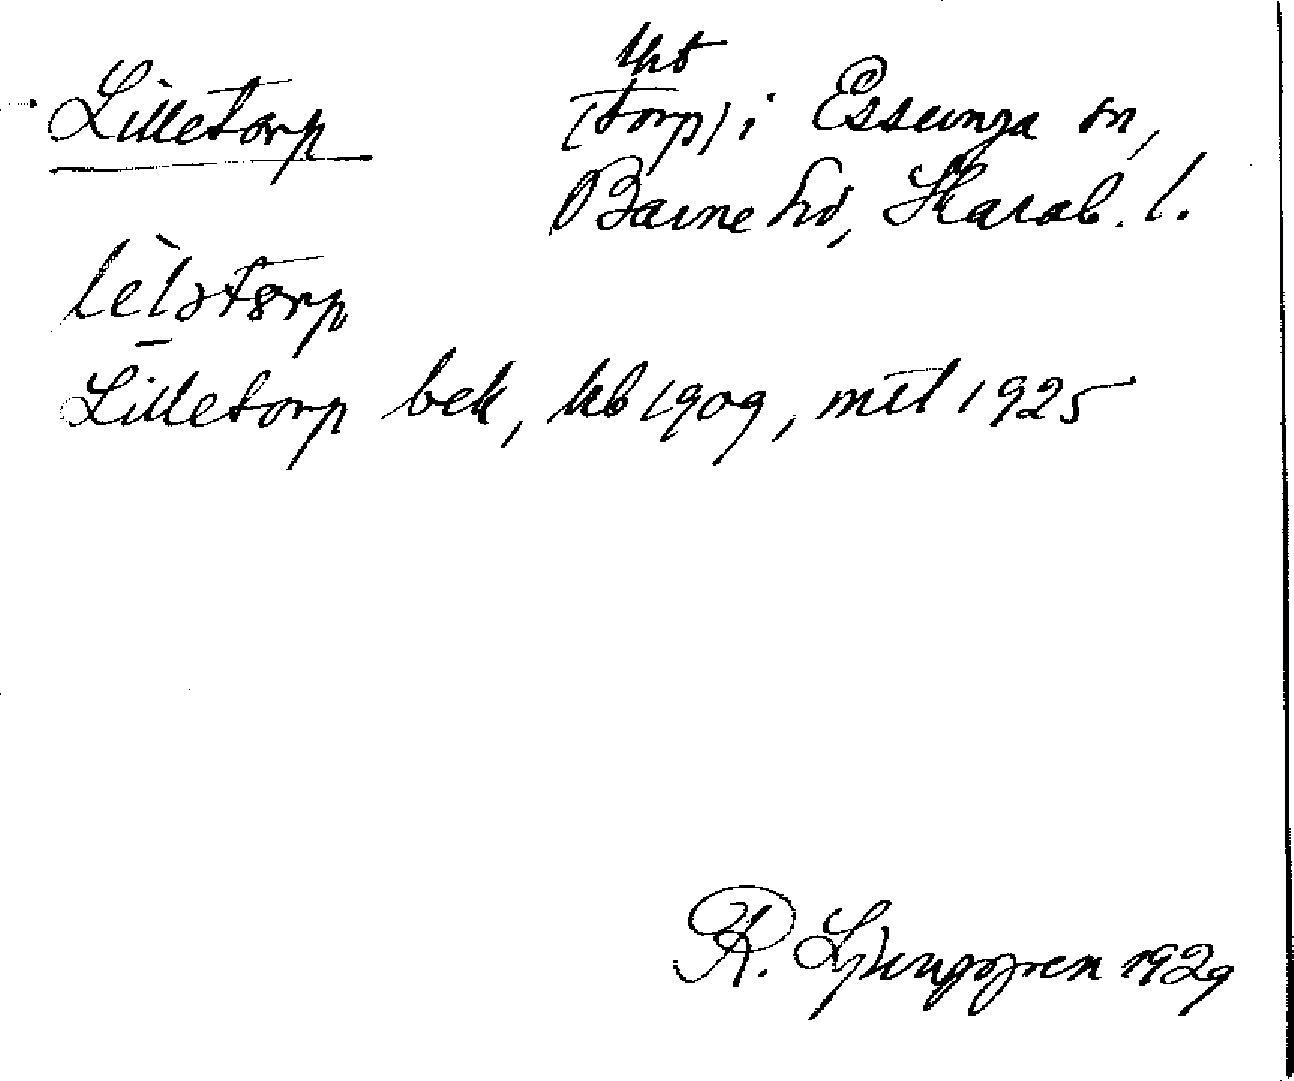 Lilletorp
lht
(torp) i Essunga sn,
Barne hd, Skarab. l.
lèlstorp
Lilletorp bek, kb 1909, mtl 1925
R. Ljunggren 1929